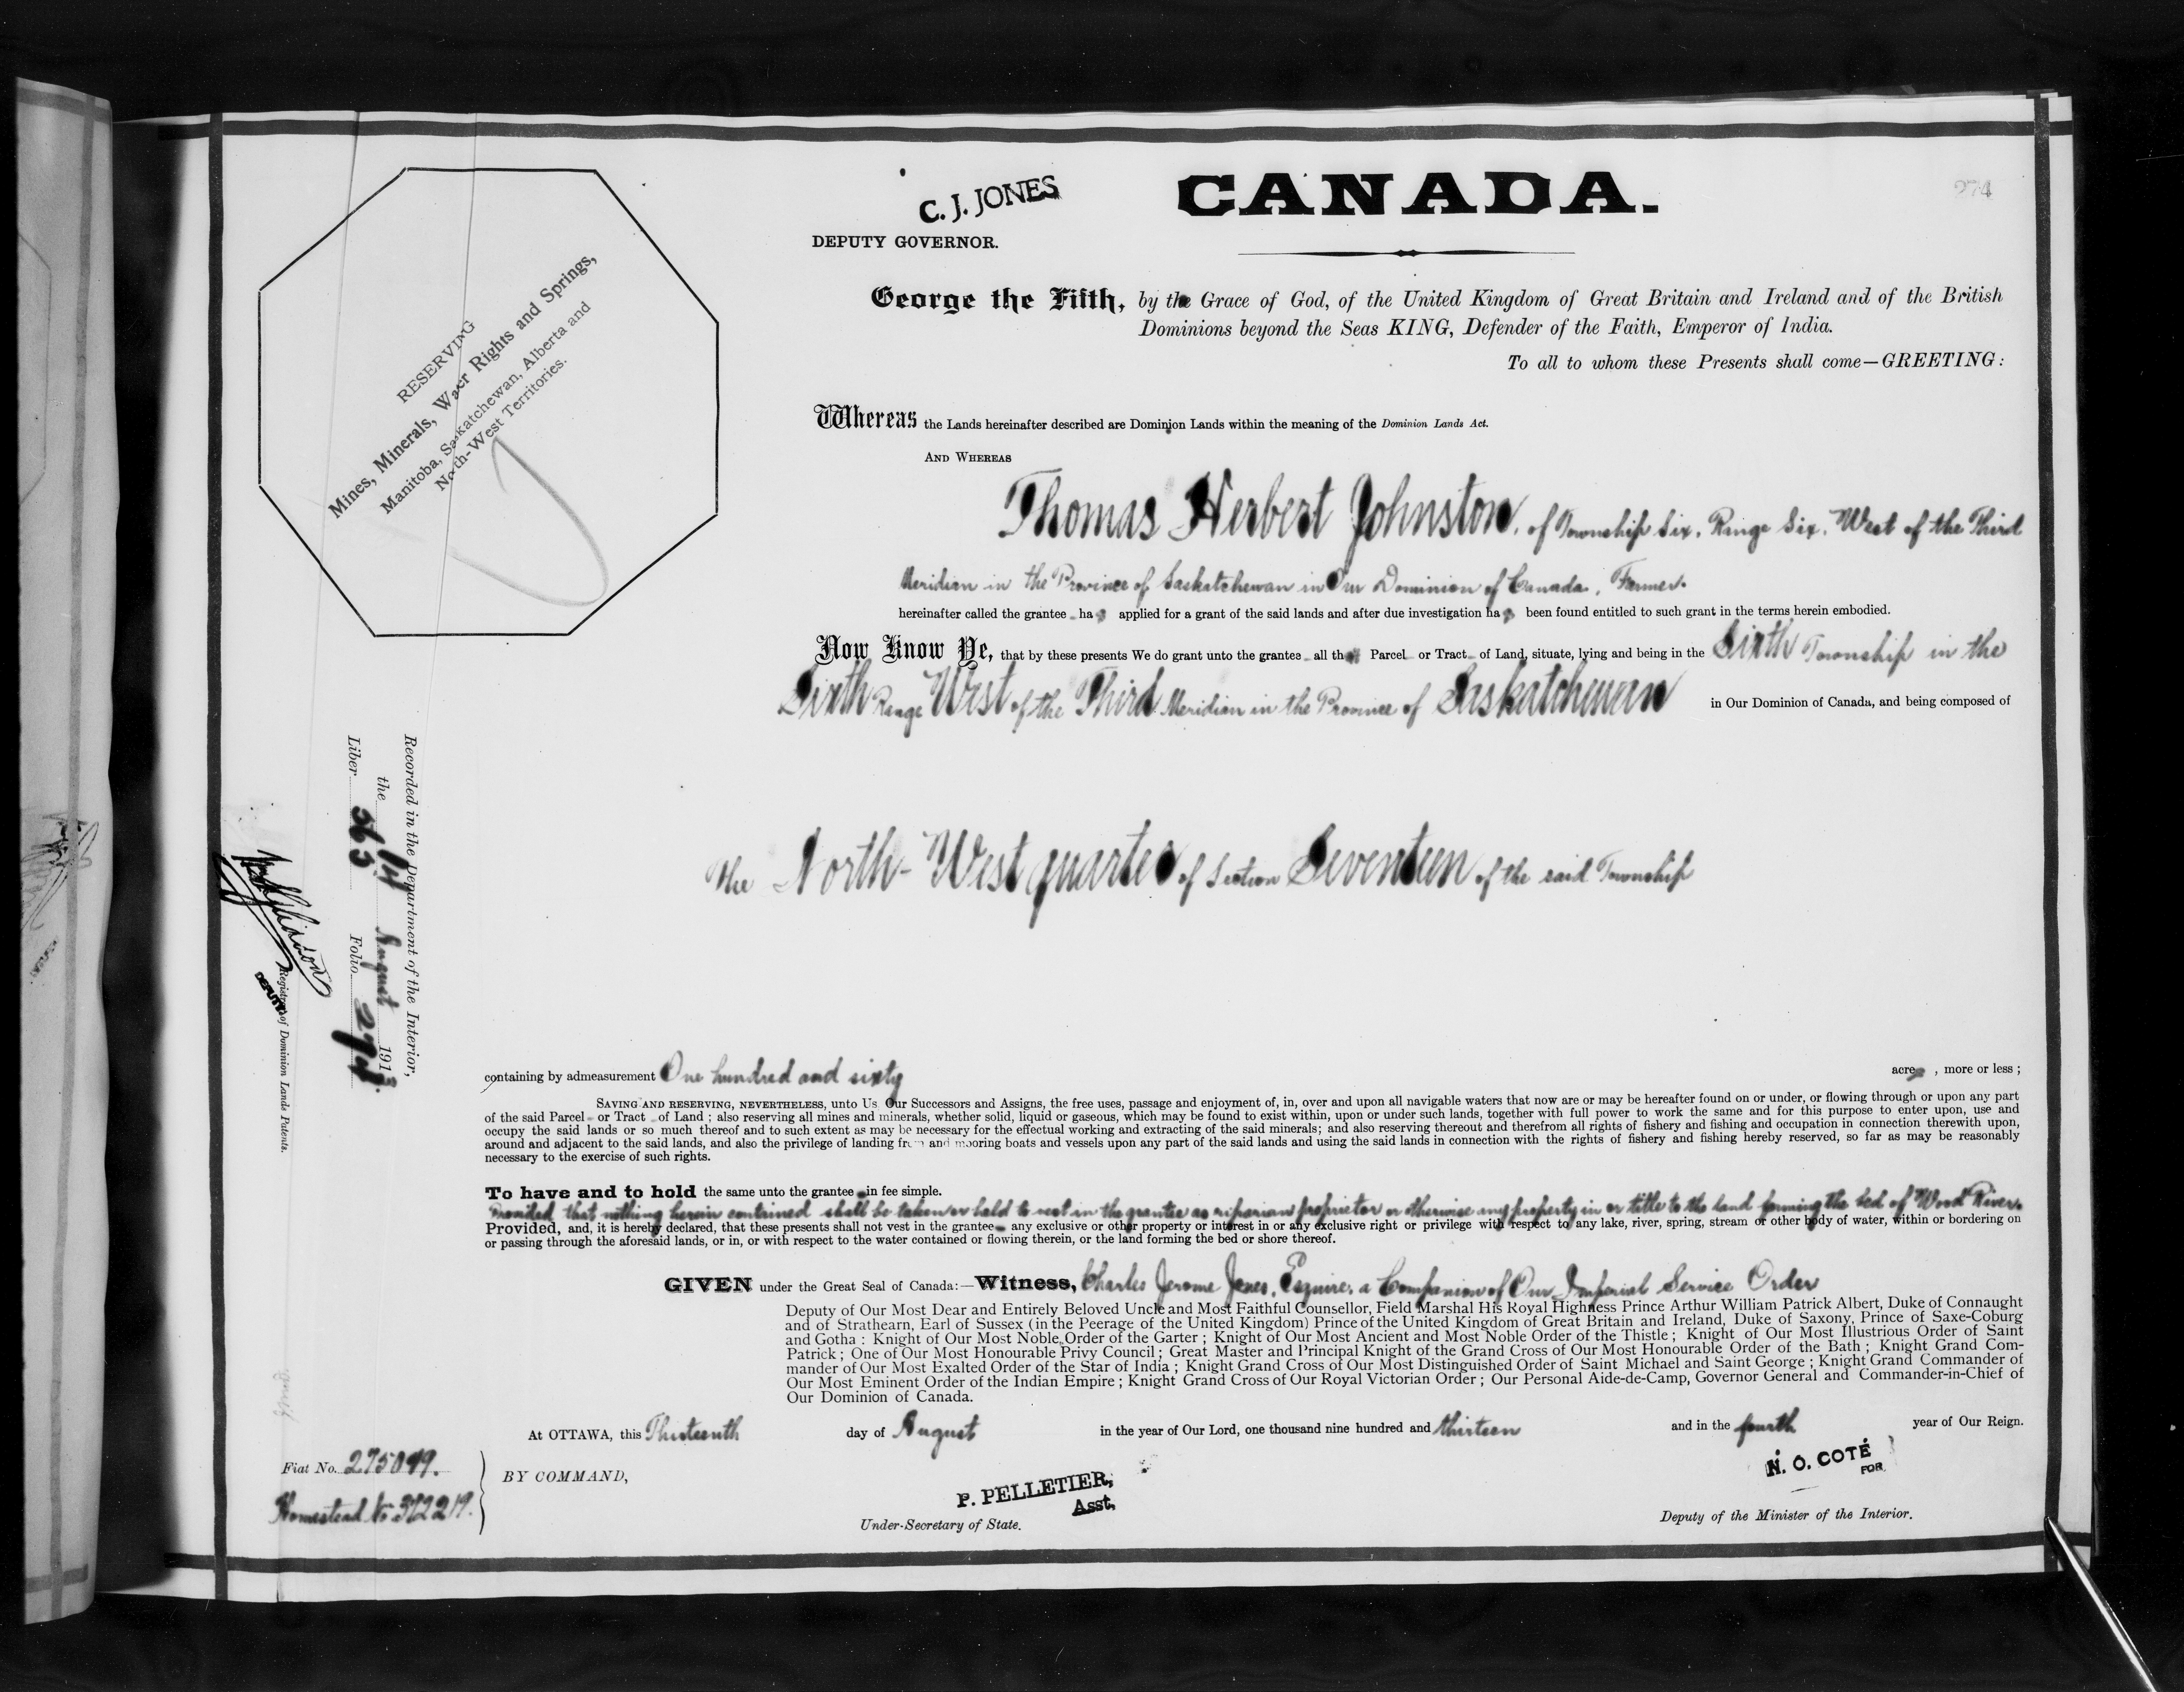 CANADA.
274
C. J. JONES
DEPUTY GOVERNOR.
RESERVING
Mines, Minerals, Water Rights and Springs,
Manitoba, Saskatchewan, Alberta and
North-West Territories.
George the Fifth, by the Grace of God, of the United Kingdom of Great Britain and Ireland and of the British
Dominions beyond the Seas KING, Defender of the Faith, Emperor of India.
To all to whom these Presents shall come—GREETING:
Whereas the Lands hereinafter described are Dominion Lands within the meaning of the Dominion Lands Act.
AND WHEREAS
Thomas Herbert Johnston, of Township Six, Range Six, West of the Third
Meridian in the Province of Saskatchewan in Our Dominion of Canada, Farmer.
hereinafter called the grantee has applied for a grant of the said lands and after due investigation has been found entitled to such grant in the terms herein embodied.
Now Know Ye, that by these presents We do grant unto the grantee all that Parcel or Tract of Land, situate, lying and being in the Sixth Township in the
Sixth Range West of the Third Meridian in the Province of Saskatchewan in Our Dominion of Canada, and being composed of
The North-West quarter of Section Seventeen of the said Township
containing by admeasurement One hundred and sixty acres, more or less;
SAVING AND RESERVING, NEVERTHELESS, unto Us Our Successors and Assigns, the free uses, passage and enjoyment of, in, over and upon all navigable waters that now are or may be hereafter found on or under, or flowing through or upon any part
of the said Parcel or Tract of Land; also reserving all mines and minerals, whether solid, liquid or gaseous, which may be found to exist within, upon or under such lands, together with full power to work the same and for this purpose to enter upon, use and
occupy the said lands or so much thereof and to such extent as may be necessary for the effectual working and extracting of the said minerals; and also reserving thereout and therefrom all rights of fishery and fishing and occupation in connection therewith upon,
around and adjacent to the said lands, and also the privilege of landing from and mooring boats and vessels upon any part of the said lands and using the said lands in connection with the rights of fishery and fishing hereby reserved, so far as may be reasonably
necessary to the exercise of such rights.
To have and to hold the same unto the grantee in fee simple.
Provided that nothing herein contained shall be taken or held to vest in the grantee as riparian proprietor or otherwise any property in or title to the land forming the bed of Wood River.
Provided, and, it is hereby declared, that these presents shall not vest in the grantee any exclusive or other property or interest in or any exclusive right or privilege with respect to any lake, river, spring, stream or other body of water, within or bordering on
or passing through the aforesaid lands, or in, or with respect to the water contained or flowing therein, or the land forming the bed or shore thereof.
GIVEN under the Great Seal of Canada:—Witness, Charles Jerome Jones, Esquire, a Companion of Our Imperial Service Order
Deputy of Our Most Dear and Entirely Beloved Uncle and Most Faithful Counsellor, Field Marshal His Royal Highness Prince Arthur William Patrick Albert, Duke of Connaught
and of Strathearn, Earl of Sussex (in the Peerage of the United Kingdom) Prince of the United Kingdom of Great Britain and Ireland, Duke of Saxony, Prince of Saxe-Coburg
and Gotha: Knight of Our Most Noble Order of the Garter; Knight of Our Most Ancient and Most Noble Order of the Thistle; Knight of Our Most Illustrious Order of Saint
Patrick; One of Our Most Honourable Privy Council; Great Master and Principal Knight of the Grand Cross of Our Most Honourable Order of the Bath; Knight Grand Com-
mander of Our Most Exalted Order of the Star of India; Knight Grand Cross of Our Most Distinguished Order of Saint Michael and Saint George; Knight Grand Commander of
Our Most Eminent Order of the Indian Empire; Knight Grand Cross of Our Royal Victorian Order; Our Personal Aide-de-Camp, Governor General and Commander-in-Chief of
Our Dominion of Canada.
At OTTAWA, this Thirteenth day of August in the year of Our Lord, one thousand nine hundred and thirteen and in the fourth year of Our Reign.
Fiat No. 275099.
Homestead No 372219.
BY COMMAND,
P. PELLETIER,
Asst,
Under-Secretary of State.
N. O. COTÉ
FOR
Deputy of the Minister of the Interior.
Recorded in the Department of the Interior,
the 14 August 1913.
Liber 563 Folio 274.
DEPUTY
Registrar of Dominion Lands Patents.